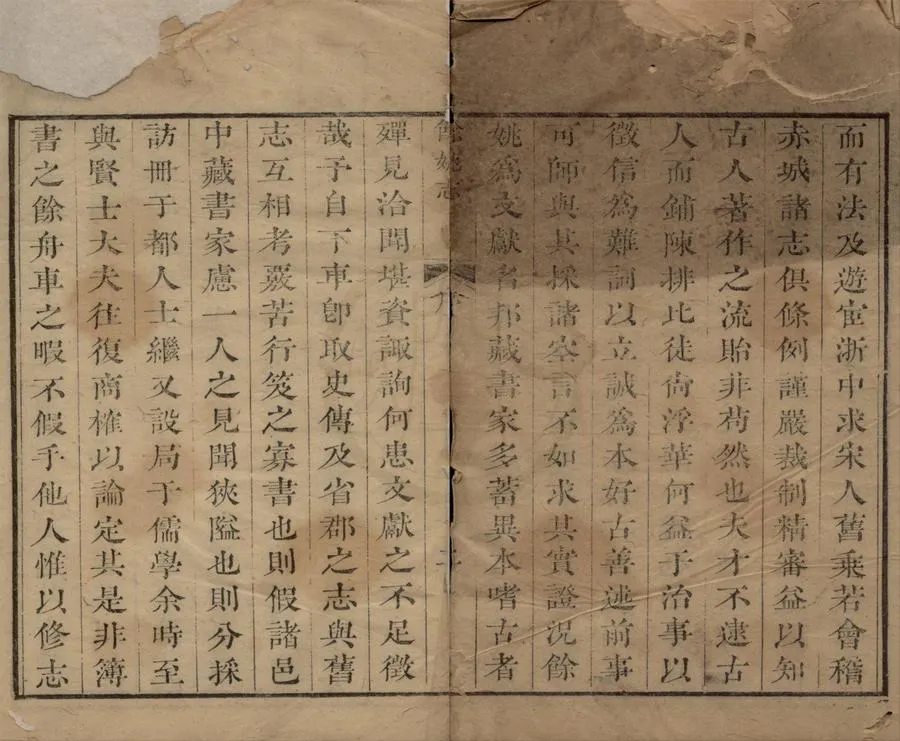 而有法及遊宦浙中求宋人舊乘若會稽
赤城諸志俱條例謹嚴裁制精審益以知
古人著作之流貽非苟然也夫才不逮古
人而鋪陳排比徒尚浮華何益于治事以
徵信爲難詞以立誠爲本好古善述前事
可師與其採諸空言不如求其實證況餘
姚爲文獻名邦藏書家多蓄異本嗜古者
餘姚志
序
二
殫見洽聞堪資諏詢何患文獻之不足徵
哉予自下車卽取史傳及省郡之志與舊
志互相考覈苦行笈之寡書也則假諸邑
中藏書家慮一人之見聞狹隘也則分採
訪冊于都人士繼又設局于儒學余時至
與賢士大夫往復商榷以論定其是非簿
書之餘舟車之暇不假手他人惟以修志